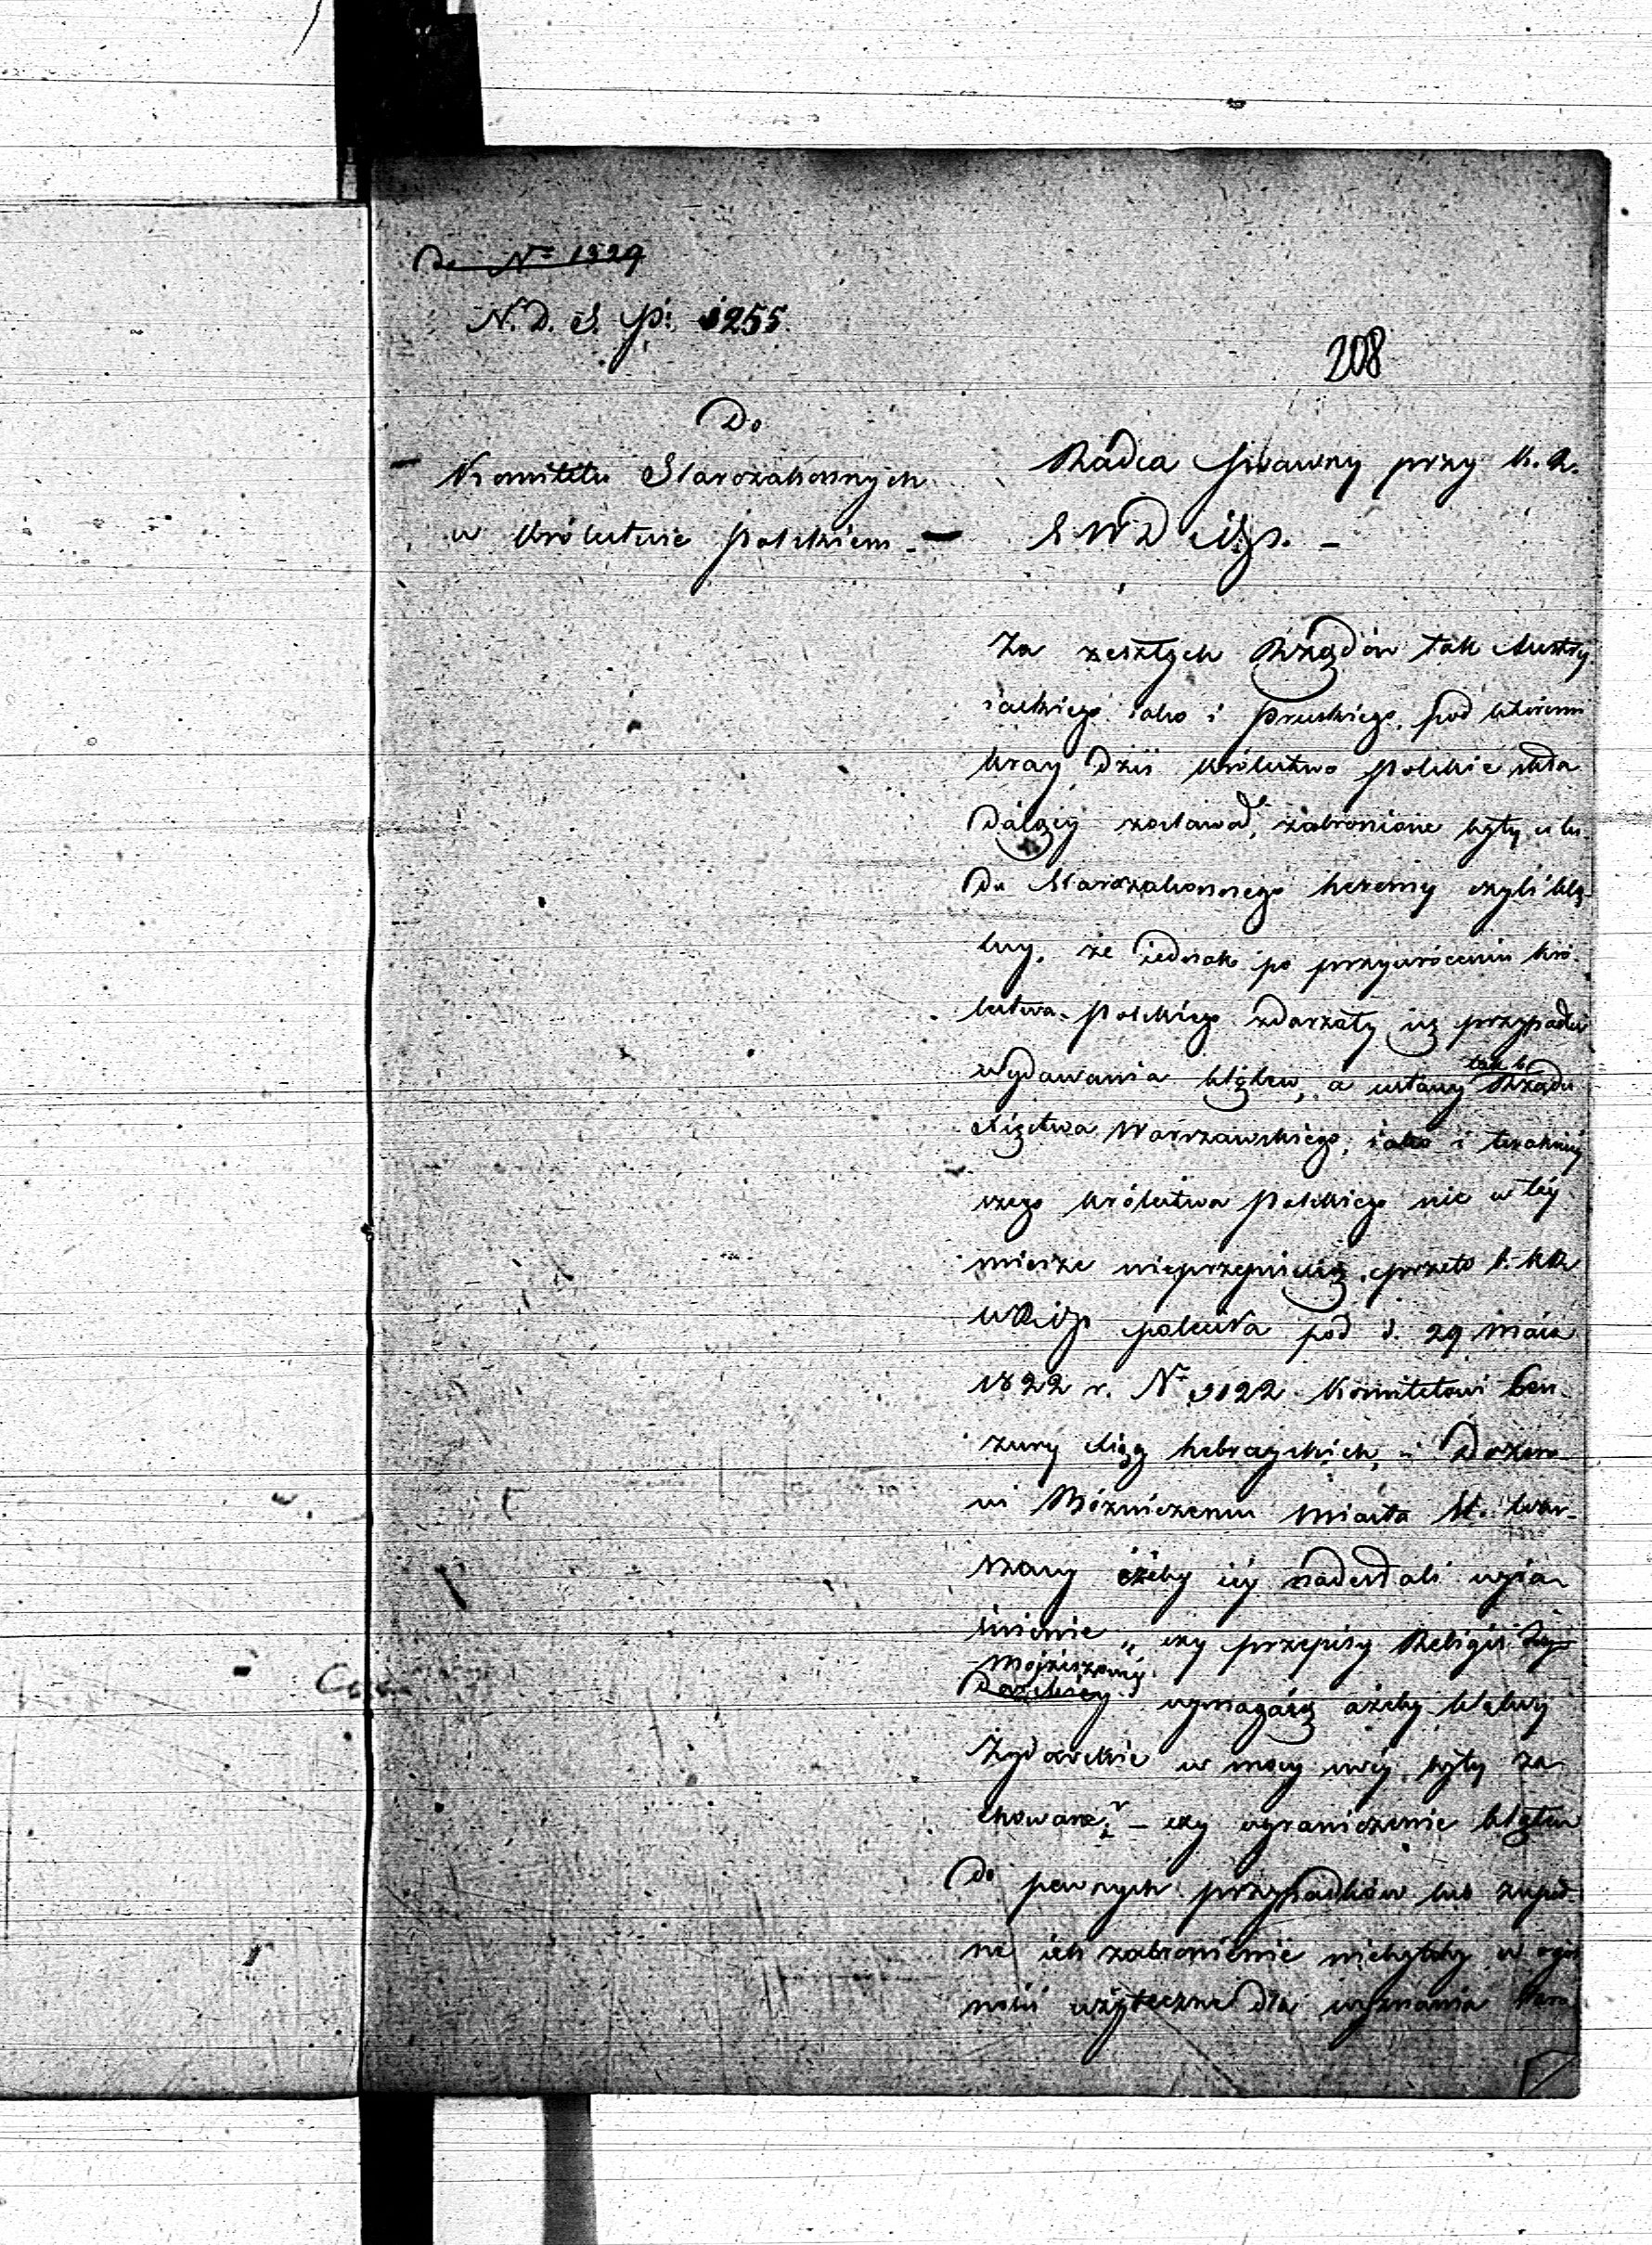 De Nº 1329
N. D. S. P: 1255
208
Do
Komitetu Starozakonnych
w Królestwie Polskiem. –
Radca Prawny przy K. R.
S W D i Op. –
Za zeszłych Rządów tak Austry
iackiego iako i Pruskiego, pod któremi
kray dziś Królestwo Polskie skła
daiący zostawał, zabronione były u lu-
du Starozakonnego heremy czyli klą-
twy, że iednak po przywróceniu Kró-
lestwa Polskiego zdarzały się przypadki
wydawania klątew, a ustawy tak b. Rządu
Xięstwa Warszawskiego, iako i teraźniey
szego Królestwa Polskiego nic w tey
mierze nieprzepisuią, przeto
poleciła pod d. 29 Maia
1822 r. Nº 3122 Komitetowi Cen-
zury Xiąg hebrayskich, i Dozoro
wi Bóżniczemu Miasta St. War-
szawy ażeby iey nadesłali wyia-
śnienie „ czy przepisy Religii Ży
dowskiey Mojżeszowey wymagaią ażeby klątwy
Żydowskie w mocy swey były za
chowane? – czy ograniczenie klątew
do pewnych przypadków lub zupeł
ne ich zabronienie niebyłoby w ogól
ności użyteczne dla wyznania Staro